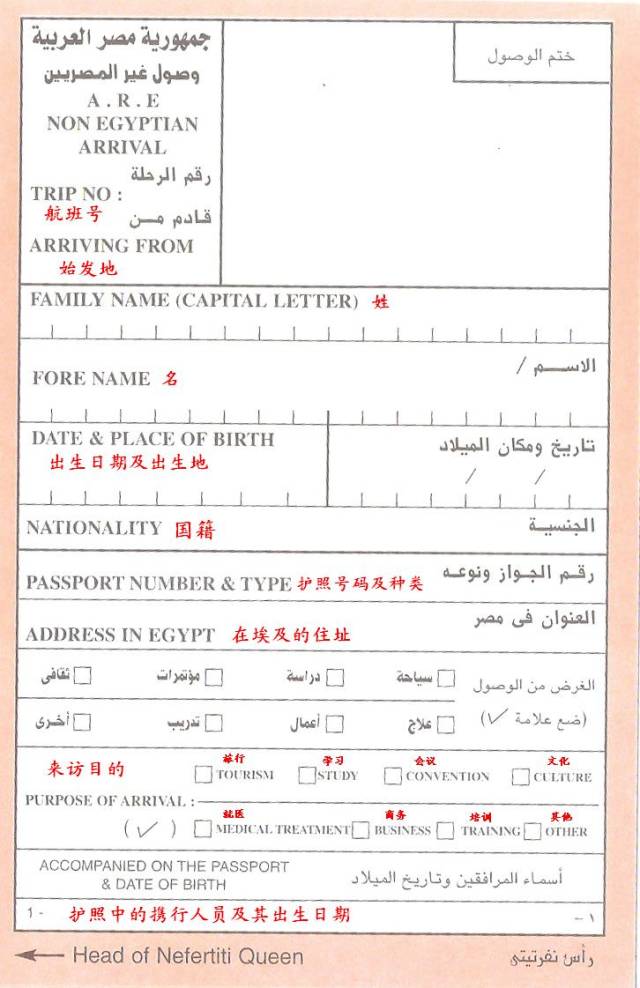 جمهورية مصر العربية
وصول غير المصريين
A . R . E
NON EGYPTIAN
ARRIVAL
ختم الوصول
رقم الرحلة
TRIP NO :
航班号 قادم مـن
ARRIVING FROM
始发地
FAMILY NAME (CAPITAL LETTER) 姓
الاســـم /
FORE NAME 名
DATE & PLACE OF BIRTH تاريخ ومكان الميلاد
出生日期及出生地 / /
NATIONALITY 国籍 الجنسيـة
PASSPORT NUMBER & TYPE 护照号码及种类 رقـم الجـواز ونوعـه
العنوان فى مصر
ADDRESS IN EGYPT 在埃及的住址
الغرض من الوصول سياحة دراسة مؤتمرات ثقافى
(ضع علامة ✓) علاج أعمال تدريب أخرى
来访目的 旅行 学习 会议 文化
TOURISM STUDY CONVENTION CULTURE
PURPOSE OF ARRIVAL :
就医 商务 培训 其他
( ✓ ) MEDICAL TREATMENT BUSINESS TRAINING OTHER
ACCOMPANIED ON THE PASSPORT
& DATE OF BIRTH
أسماء المرافقين وتاريخ الميلاد
1 - 护照中的携行人员及其出生日期 ١ –
Head of Nefertiti Queen رأس نفرتيتى